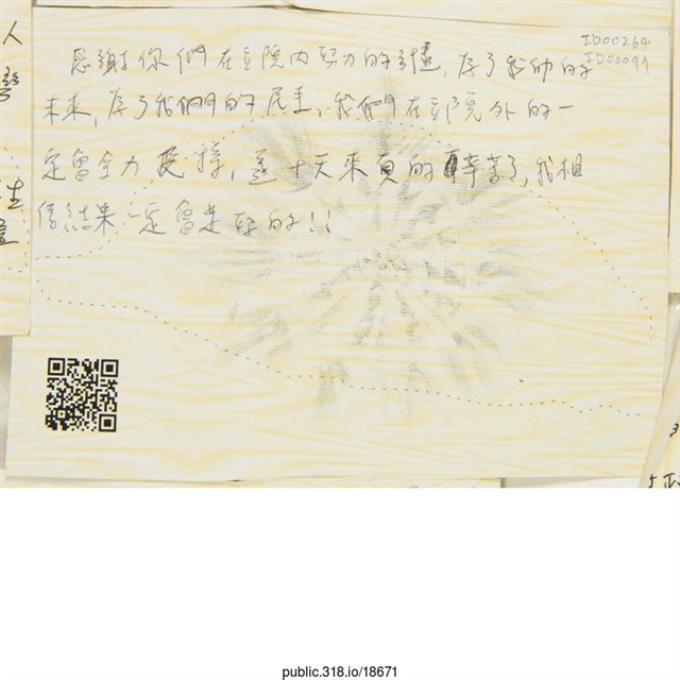 ID00264
ID00091
感謝你們在立院內努力的撐，為了我們的
未來，為了我們的民主，我們在立院外的一
定會全力支持，這十天來真的辛苦了，我相
信結果一定會是好的！！
人
生
public.318.io/18671